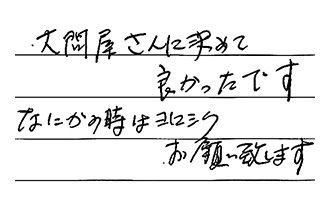 大問屋さんに求めて
良かったです
なにかの時はヨロシク
お願い致します